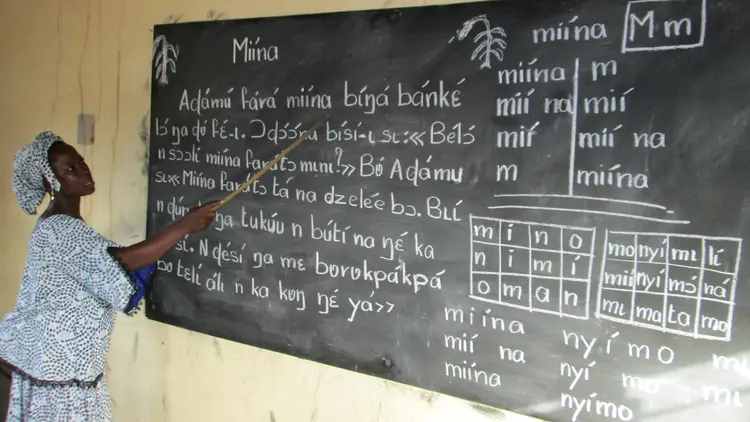 Miína
Aɖámú fárá miína bíŋá bánké
lɔ́ ŋa ɖʊ́ fɛ́-ɩ. Ɔ ɖɔ́ɔ́ná bísí-ɩ sɩ:<< Bɛ́lɔ́
n sɔɔlí miína farátɔ mɩnɩ?>> Bʊ́ Aɖámu
sɩ<< Miína farátɔ tá na dzeleé bɔ. Bɩlí
ŋa tukúu n bútí na ŋɛ́ ka
N ɖésí ŋa mɛ bʊrʊkpákpá
bʊ telí álɩ n ka kʊŋ ŋɛ́ yá>>
miína Mm
miína m
mií na mií
mií mií na
m miína
m i n o
n i m i
o m a n
mo nyí mɩ lí
mií nyí mɔ́ ná
mɩ ma ta mo
miína nyímo
mií na nyí mo mɩ
miína nyímo